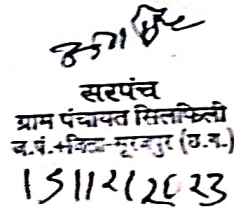 सरपंच
ग्राम पंचायत सिलफिली
ज.पं.+जिला-सूरजपुर (छ.ग.)
15/12/2023